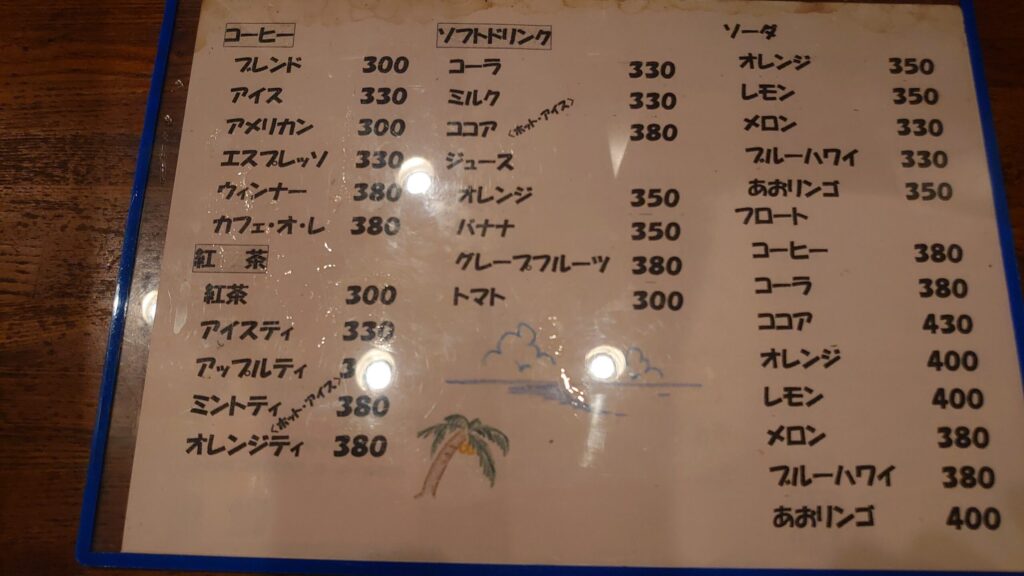 コーヒー
ブレンド 300
アイス 330
アメリカン 300
エスプレッソ 330
ウィンナー 380
カフェ・オ・レ 380
紅 茶
紅茶 300
アイスティ 330
アップルティ 3
ミントティ 380
〈ホット・アイス〉
オレンジティ 380
ソフトドリンク
コーラ 330
ミルク 330
ココア 〈ホット・アイス〉 380
ジュース
オレンジ 350
バナナ 350
グレープフルーツ 380
トマト 300
ソーダ
オレンジ 350
レモン 350
メロン 330
ブルーハワイ 330
あおリンゴ 350
フロート
コーヒー 380
コーラ 380
ココア 430
オレンジ 400
レモン 400
メロン 380
ブルーハワイ 380
あおリンゴ 400